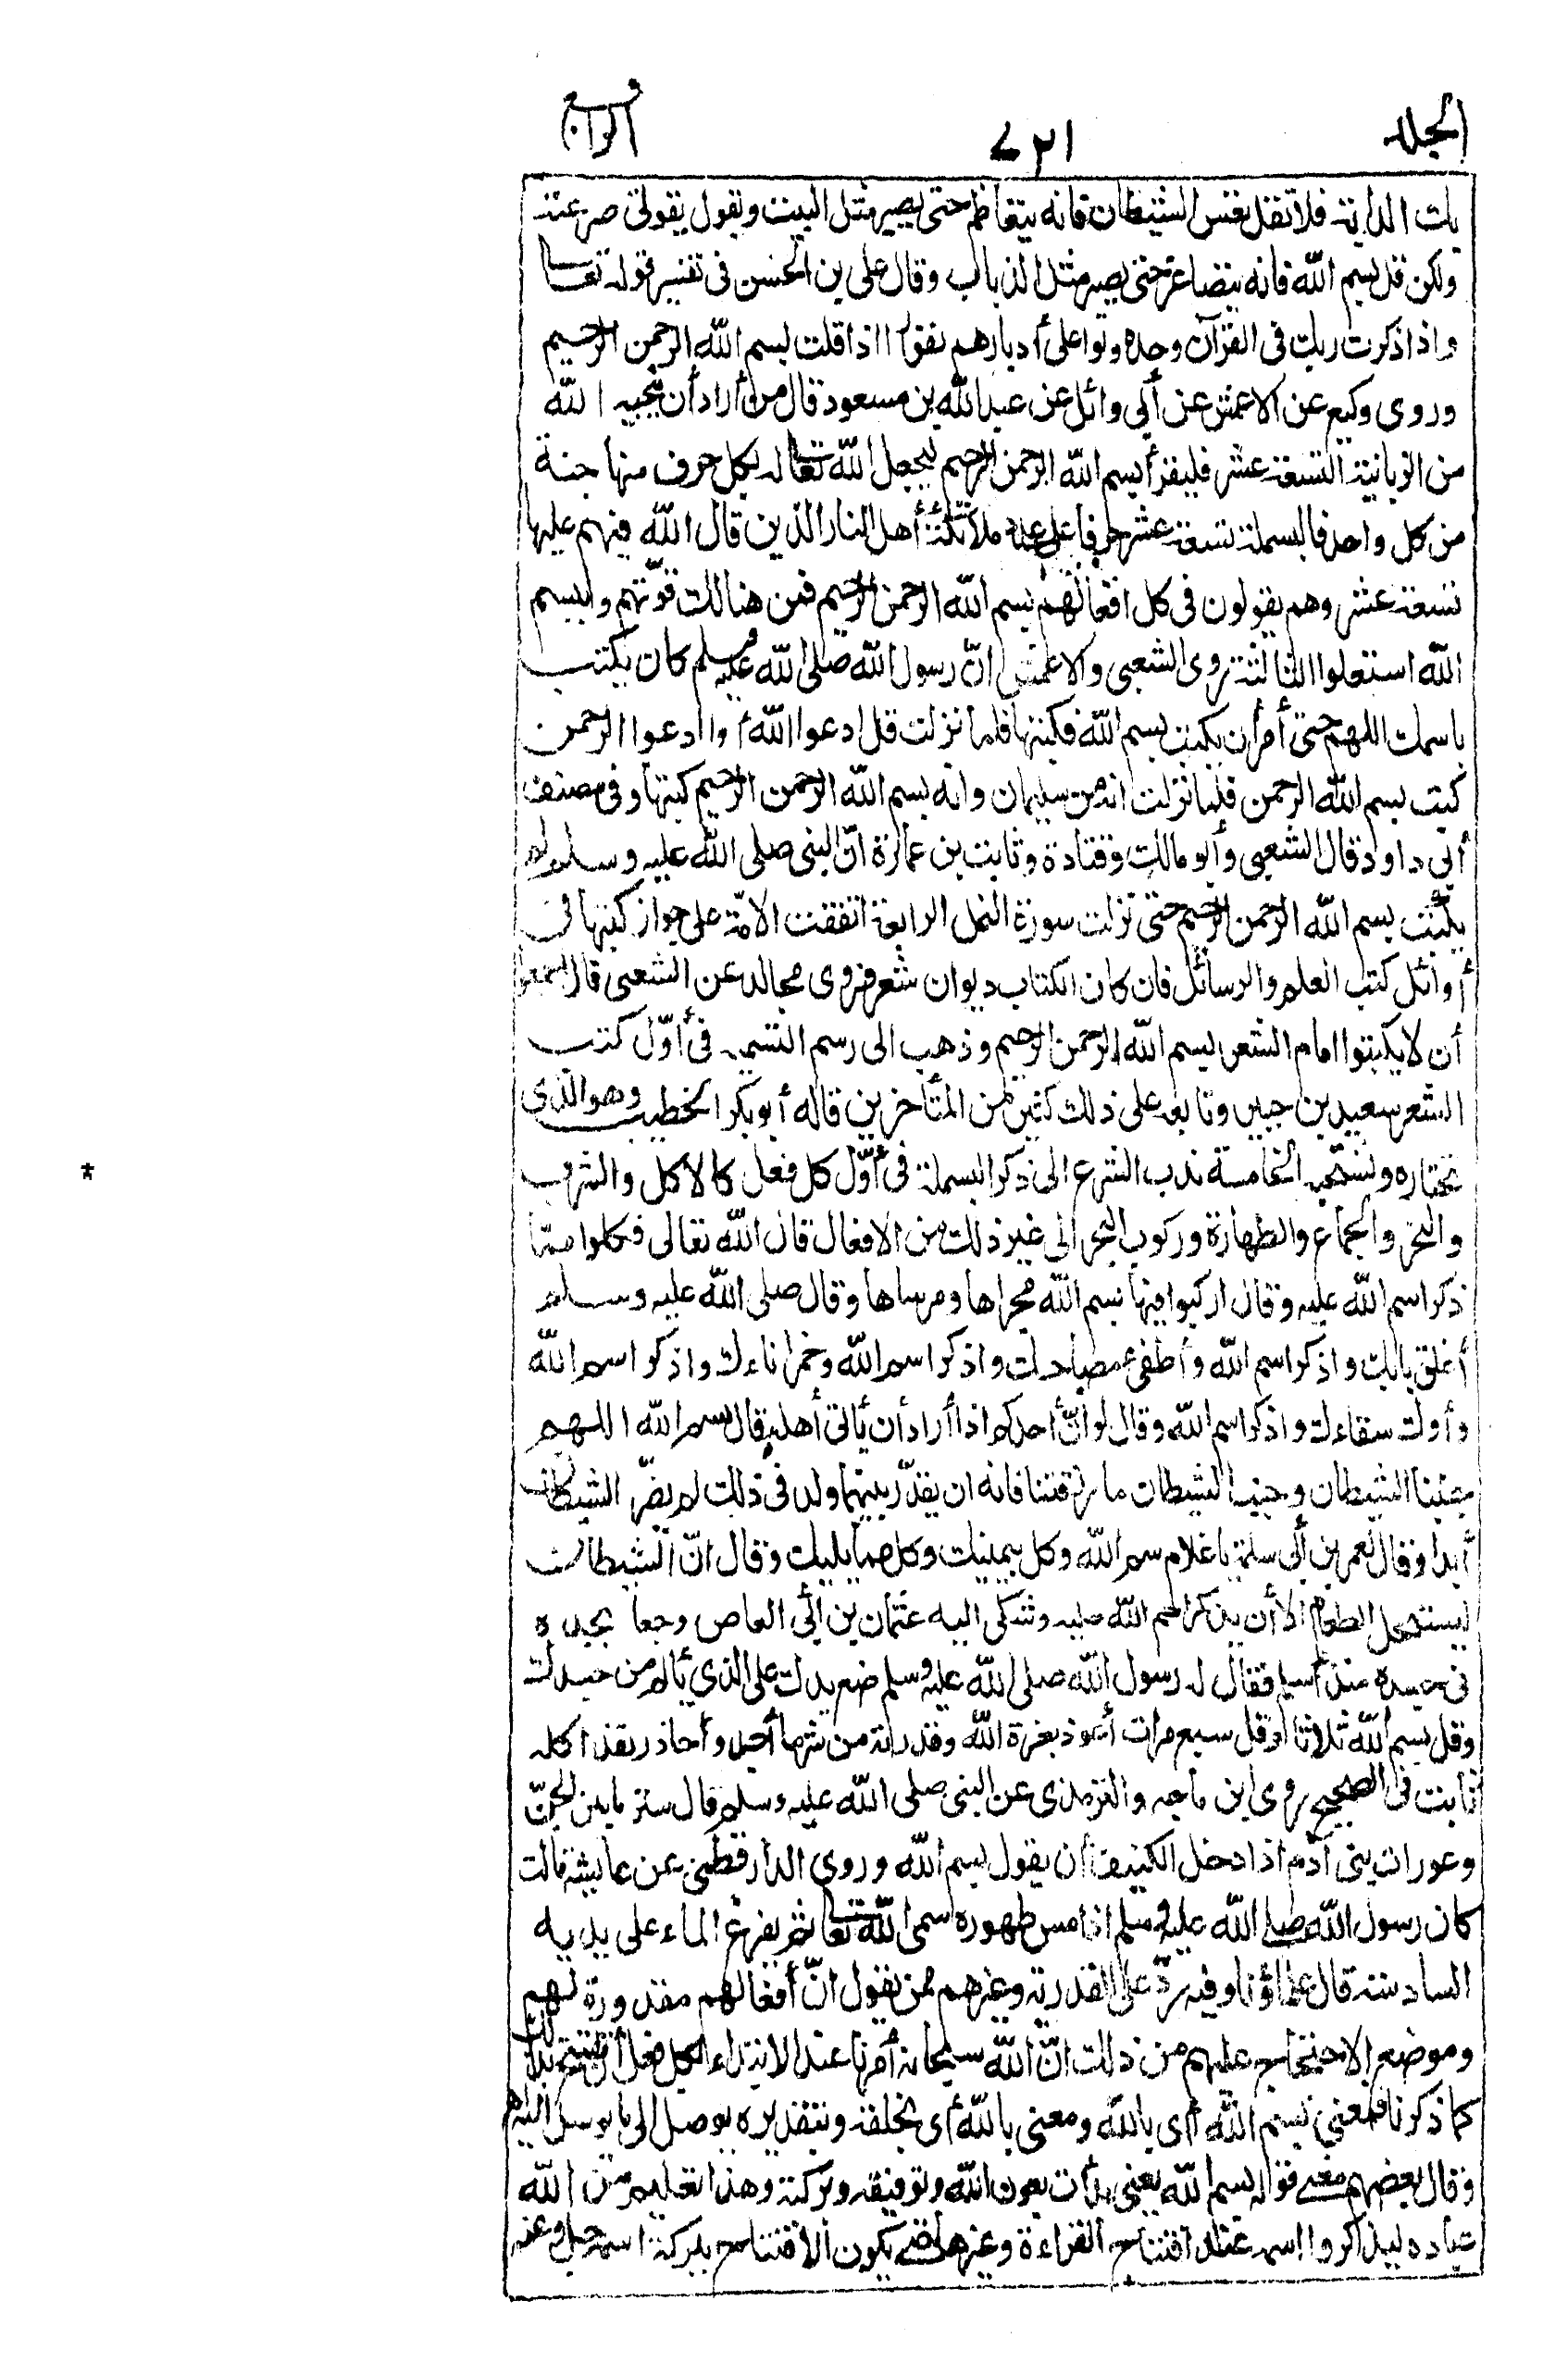 الجلد ٧٢١ الرابع
بك الدابة فلا تقل تعس الشيطان فانه يتعاظم حتى يصير مثل البيت ويقول بقوتى صرعته
ولكن قل بسم الله فانه يتصاغر حتى يصير مثل الذباب وقال على بن الحسن فى تفسير قوله تعالى
واذا ذكرت ربك فى القرآن وحده ولوا على أدبارهم نفورا اذا قلت بسم الله الرحمن الرحيم
وروى وكيع عن الاعمش عن أبى وائل عن عبد الله بن مسعود قال من أراد أن ينجيه الله
من الزبانية التسعة عشر فليقرأ بسم الله الرحمن الرحيم ليجعل الله تعالى له بكل حرف منها جنة
من كل واحد فالبسملة تسعة عشر حرفا على عدد ملائكة أهل النار الذين قال الله فيهم عليها
تسعة عشر وهم يقولون فى كل افعالهم بسم الله الرحمن الرحيم فمن هنالك قوتهم وببسم
الله استعلوا الثالثة روى الشعبى والاعمش انّ رسول الله صلى الله عليه وسلم كان يكتب
باسمك اللهم حتى أمر أن يكتب بسم الله فكتبها فلما نزلت قل ادعوا الله أو ادعوا الرحمن
كتب بسم الله الرحمن فلما نزلت انه من سليمان وانه بسم الله الرحمن الرحيم كتبها وفى مصنف
أبى داود قال الشعبى وأبو مالك وقتادة وثابت بن عمارة انّ النبى صلى الله عليه وسلم لم
يكتب بسم الله الرحمن الرحيم حتى نزلت سورة النمل الرابعة اتفقت الامّة على جواز كتبها فى
أوائل كتب العلم والرسائل فان كان الكتاب ديوان شعر فروى مجالد عن الشعبى قال اجمعوا
أن لا يكتبوا امام الشعر بسم الله الرحمن الرحيم وذهب الى رسم التسمية فى أوّل كتب
الشعر سعيد بن جبير وتابعه على ذلك كثير من المتأخرين قاله أبو بكر الخطيب وهو الذى
نختاره ونستحبه الخامسة ندب الشرع الى ذكر البسملة فى أوّل كل فعل كالاكل والشرب
والنحر والجماع والطهارة وركوب البحر الى غير ذلك من الافعال قال الله تعالى فكلوا ممّا
ذكر اسم الله عليه وقال اركبوا فيها بسم الله مجراها ومرساها وقال صلى الله عليه وسلم
أغلق بابك واذكر اسم الله وأطفئ مصباحك واذكر اسم الله وخمر اناءك واذكر اسم الله
وأوك سقاءك واذكر اسم الله وقال لو أنّ أحدكم اذا أراد أن يأتى أهله قال بسم الله اللهم
جنبنا الشيطان وجنب الشيطان ما رزقتنا فانه ان يقدّر بينهما ولد فى ذلك لم يضرّه الشيطان
أبدا وقال لعمر بن أبى سلمة يا غلام سم الله وكل بيمينك وكل مما يليك وقال انّ الشيطان
ليستحل الطعام الا أن يذكر اسم الله عليه وشكى اليه عثمان بن أبى العاص وجعا يجده
فى جسده منذ أسلم فقال له رسول الله صلى الله عليه وسلم ضع يدك على الذى يألم من جسدك
وقل بسم الله ثلاثا وقل سبع مرات أعوذ بعزة الله وقدرته من شر ما أجد وأحاذر بهذا كله
ثابت فى الصحيح روى ابن ماجه والترمذى عن النبى صلى الله عليه وسلم قال ستر ما بين الجنّ
وعورات بنى آدم اذا دخل الكنيف أن يقول بسم الله وروى الدارقطنى عن عايشة قالت
كان رسول الله صلى الله عليه وسلم اذا مس طهوره سمى الله تعالى ثم يفرغ الماء على يديه
السادسة قال علماؤنا وفيه ردّ على القدرية وغيرهم ممن يقول انّ أفعالهم مقدورة لهم
وموضع الاحتجاج عليهم من ذلك انّ الله سبحانه أمرنا عند الابتداء لكل فعل أن نفتتح بذلك
كما ذكرنا فمعنى بسم الله أى بالله ومعنى بالله أى بخلقه وبتقديره يوصل الى ما يوصل اليه
وقال بعضهم معنى قوله بسم الله يعنى بدأت بعون الله وتوفيقه وبركته وهذا تعليم من الله
عباده ليذكروا اسمه عند افتتاح القراءة وغيرها حتى يكون الافتتاح ببركة اسمه جل وعز
*